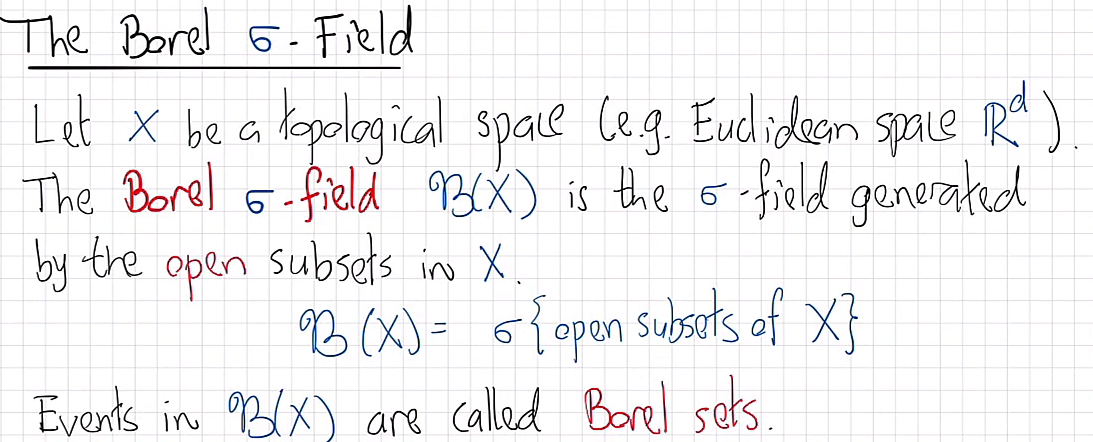 The Borel σ-Field
Let X be a topological space (e.g. Euclidean space ℝᵈ).
The Borel σ-field ℬ(X) is the σ-field generated
by the open subsets in X.
ℬ(X) = σ{open subsets of X}
Events in ℬ(X) are called Borel sets.